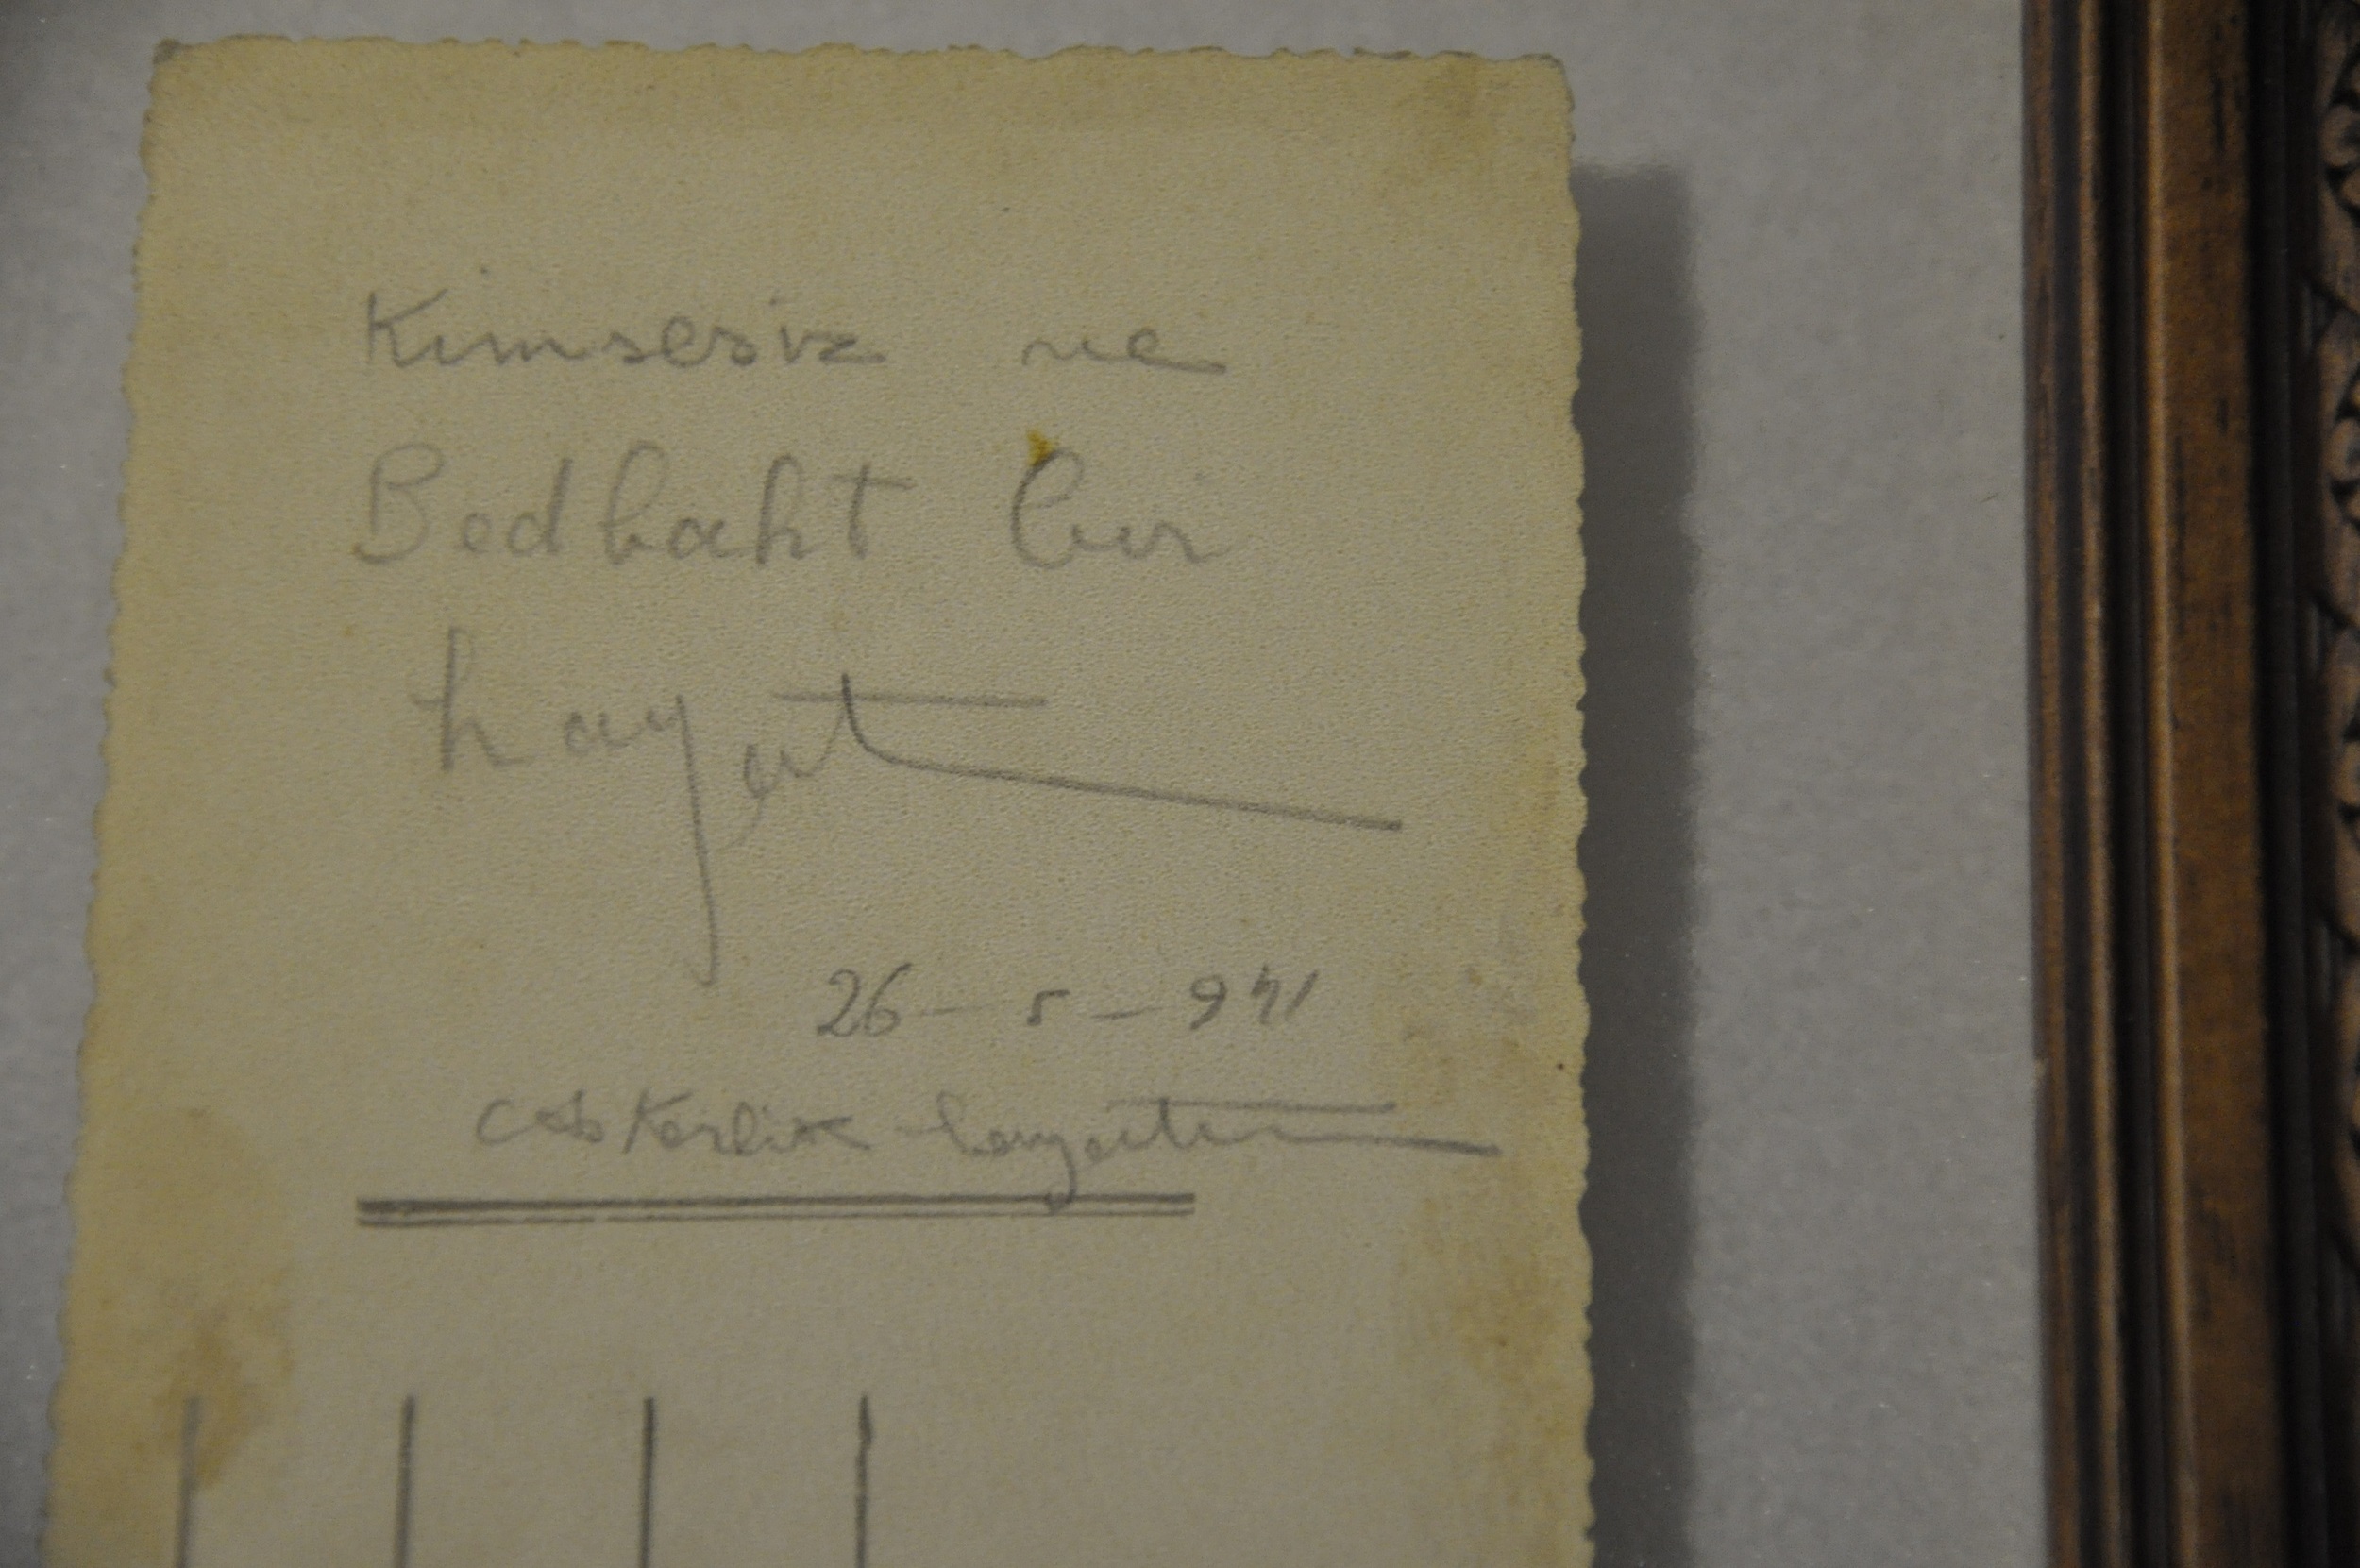 Kimsesiz ve
Bedbaht bir
hayat
26-5-941
askerlik hayatı